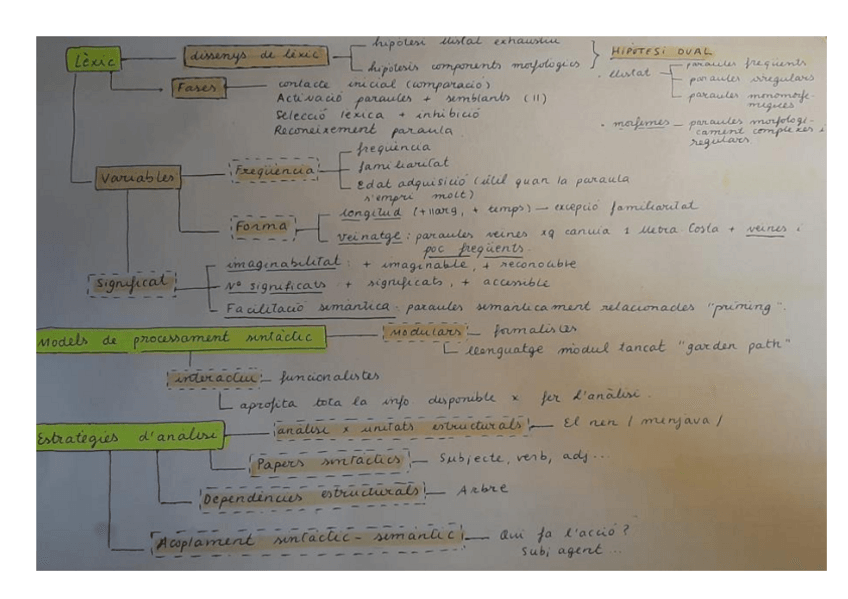 Lèxic
dissenys de lèxic
hipòtesi llistat exhaustiu
hipòtesis components morfològics
HIPÒTESI DUAL
· llistat
paraules freqüents
paraules irregulars
paraules monomorfe-
miques
· morfemes — paraules morfologi-
cament complexes i
regulars.
Fases
contacte inicial (comparació)
Activació paraules + semblants (11)
Selecció lèxica + inhibició
Reconeixement paraula.
Variables
Freqüència
freqüència
familiaritat
edat adquisició (útil quan la paraula
s'empri molt)
Forma
longitud (+ llarg, + temps) — excepció familiaritat
veïnatge: paraules veïnes xq canvia 1 lletra. Costa + veïnes i
poc freqüents.
Significat
imaginabilitat: + imaginable, + reconoïble
Nº significats: + significats, + accessible
Facilitació semàntica: paraules semànticament relacionades "priming".
Models de processament sintàctic
Modulars
formalistes
llenguatge mòdul tancat "garden path"
interactiu
funcionalistes
aprofita tota la info disponible x fer l'anàlisi.
Estratègies d'anàlisi
anàlisi x unitats estructurals — El nen / menjava /
Papers sintàctics — Subjecte, verb, adj...
Dependències estructurals — Arbre
Acoplament sintàctic-semàntic — Qui fa l'acció?
Subj agent...